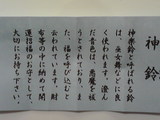 神鈴
神楽鈴と呼ばれる鈴
は、巫女様などに良
く使われます。澄ん
だ音色は、悪魔を祓
うとされており、ま
た、福を呼び込むと
云われています。財
布等の中に納め、開
運招福のお守として
大切にお持ち下さい。